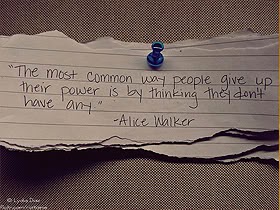 "The most common way people give up
their power is by thinking they don't
have any"
-Alice Walker
© Lydia Dias